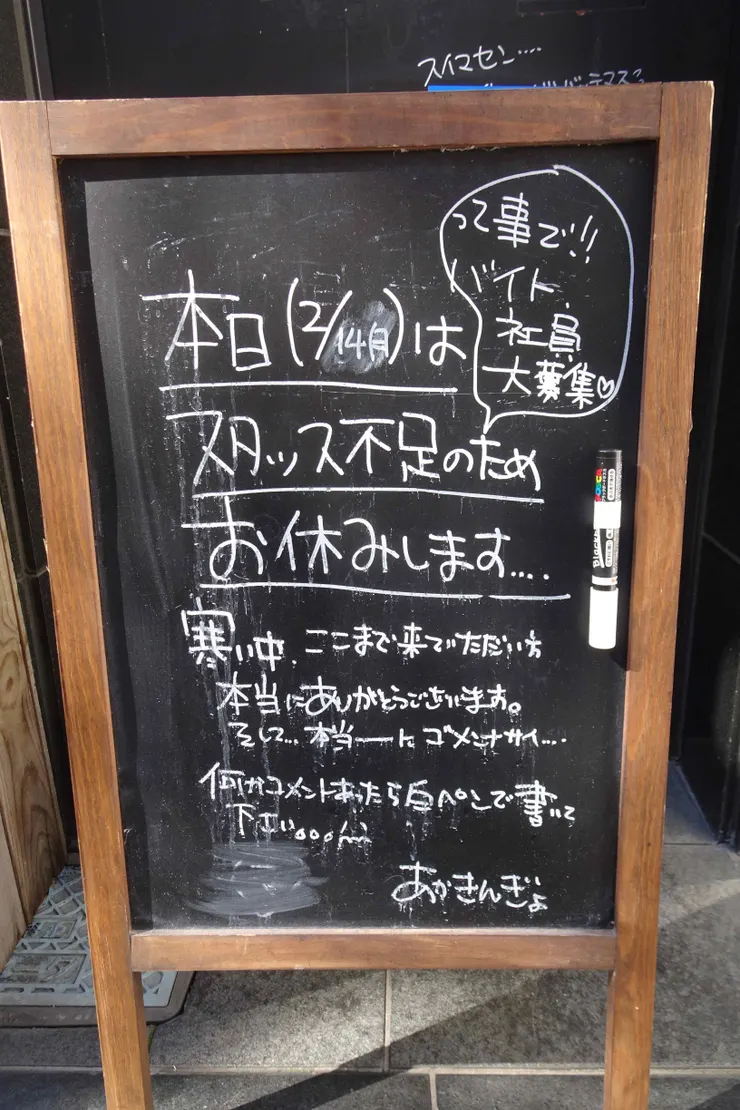 スイマセン….
って事で!!
バイト.
社員
大募集♡
本日(2/14月)は
スタッス不足のため
お休みします….
寒い中、ここまで来てただい方
本当にありがとうございます。
そして…本当ーにゴメンナサイ….
何かコメントあったら白ペンで書いて
下さい。。。m
あかきんぎょ